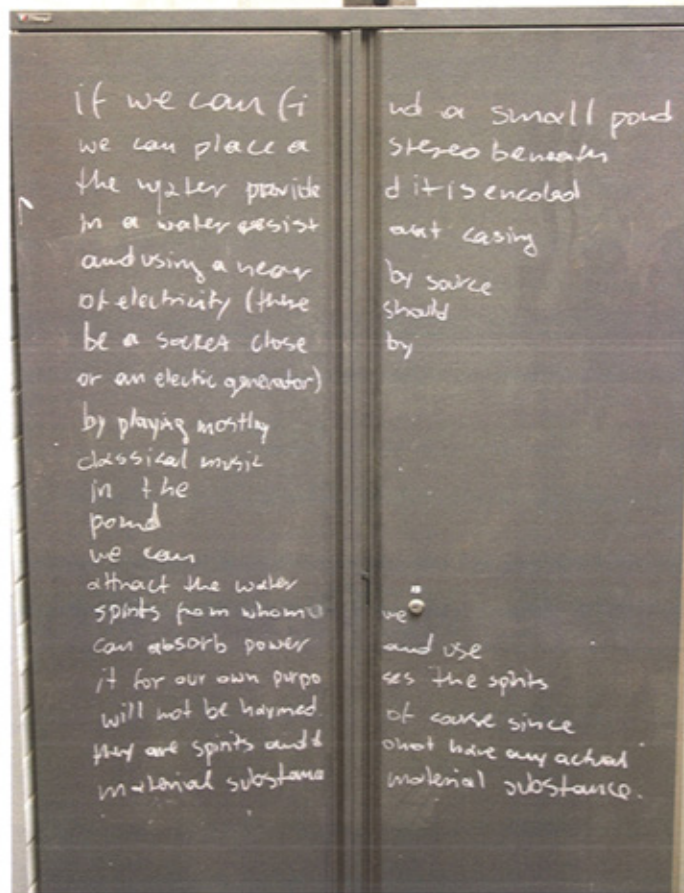 if we can fi nd a small pond
we can place a stereo beneath
the water provide d it is encolsd
in a water resist ant casing
and using a near by source
of electricity (there should
be a socket close by
or an electic generator)
by playing mostly
classical music
in the
pond
we can
attract the water
spirits from whom we
can absorb power and use
it for our own purpo ses the spirits
will not be harmed of course since
they are spirits and d onot have any actual
material substance material substance.